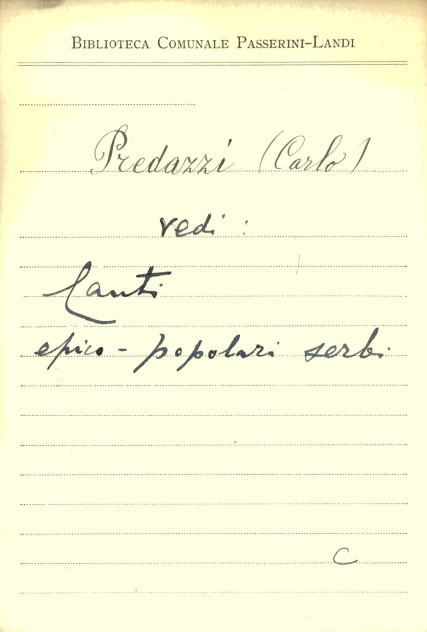 BIBLIOTECA COMUNALE PASSERINI-LANDI
Predazzi (Carlo)
vedi :
Canti
epico - popolari serbi
C